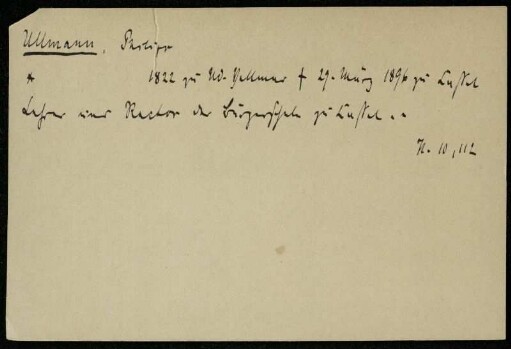 Ullmann, Philipp
* 1822 zu Nd-Vellmar † 29. März 1896 zu Cassel
Lehrer und Rector der Bürgerschule zu Cassel. -
H. 10, 112